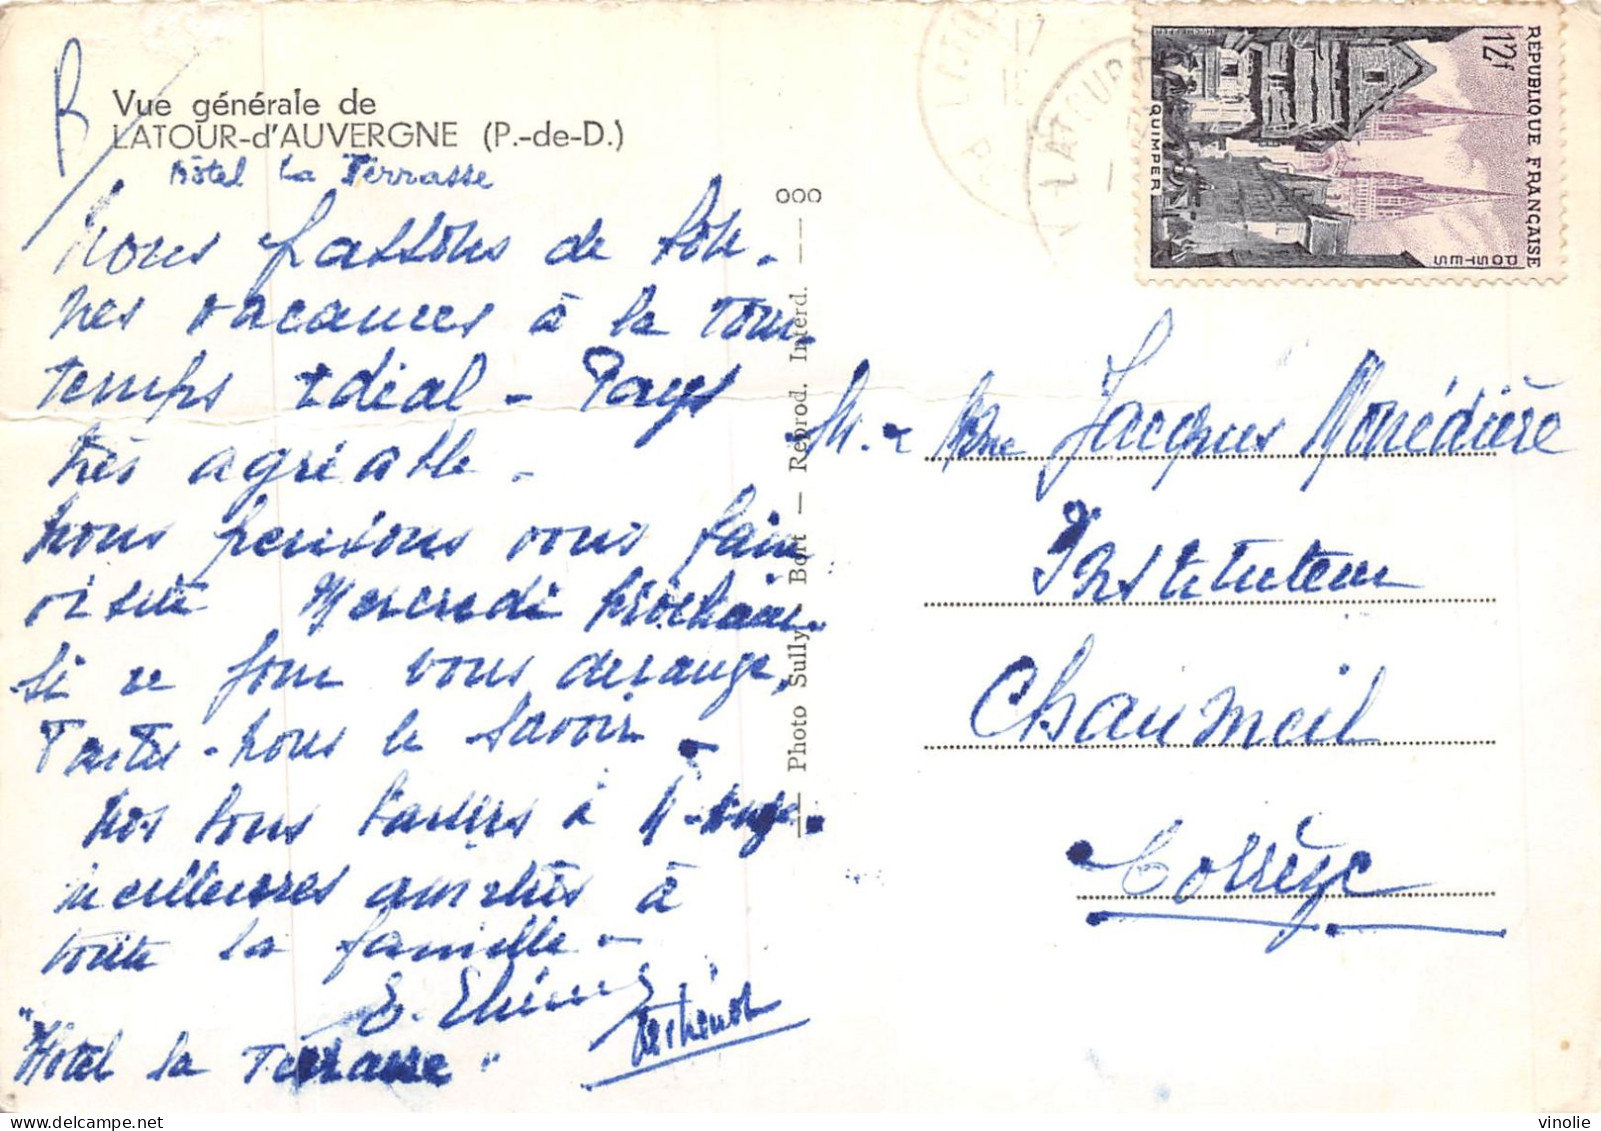 R
Vue générale de
LATOUR-d'AUVERGNE (P.-de-D.)
Hôtel La Terrasse
Nous passons de bon-
nes vacances à la Tour
temps idéal - Pays
très agréable -
Nous pensions vous faire
visite Mercredi prochain.
Si ce jour vous dérange,
Faites-nous le savoir -
Nos bons baisers à
meilleures amitiés à
toute la famille -
"Hôtel la Terrasse"
Photo Sully, Bort — Reprod. Interd. — 000
LATOUR
LATOUR
RÉPUBLIQUE FRANÇAISE
12f
POSTES
QUIMPER
M. & Mme Jacques Monédière
Instituteur
Chaumeil
Corrèze
vinolie